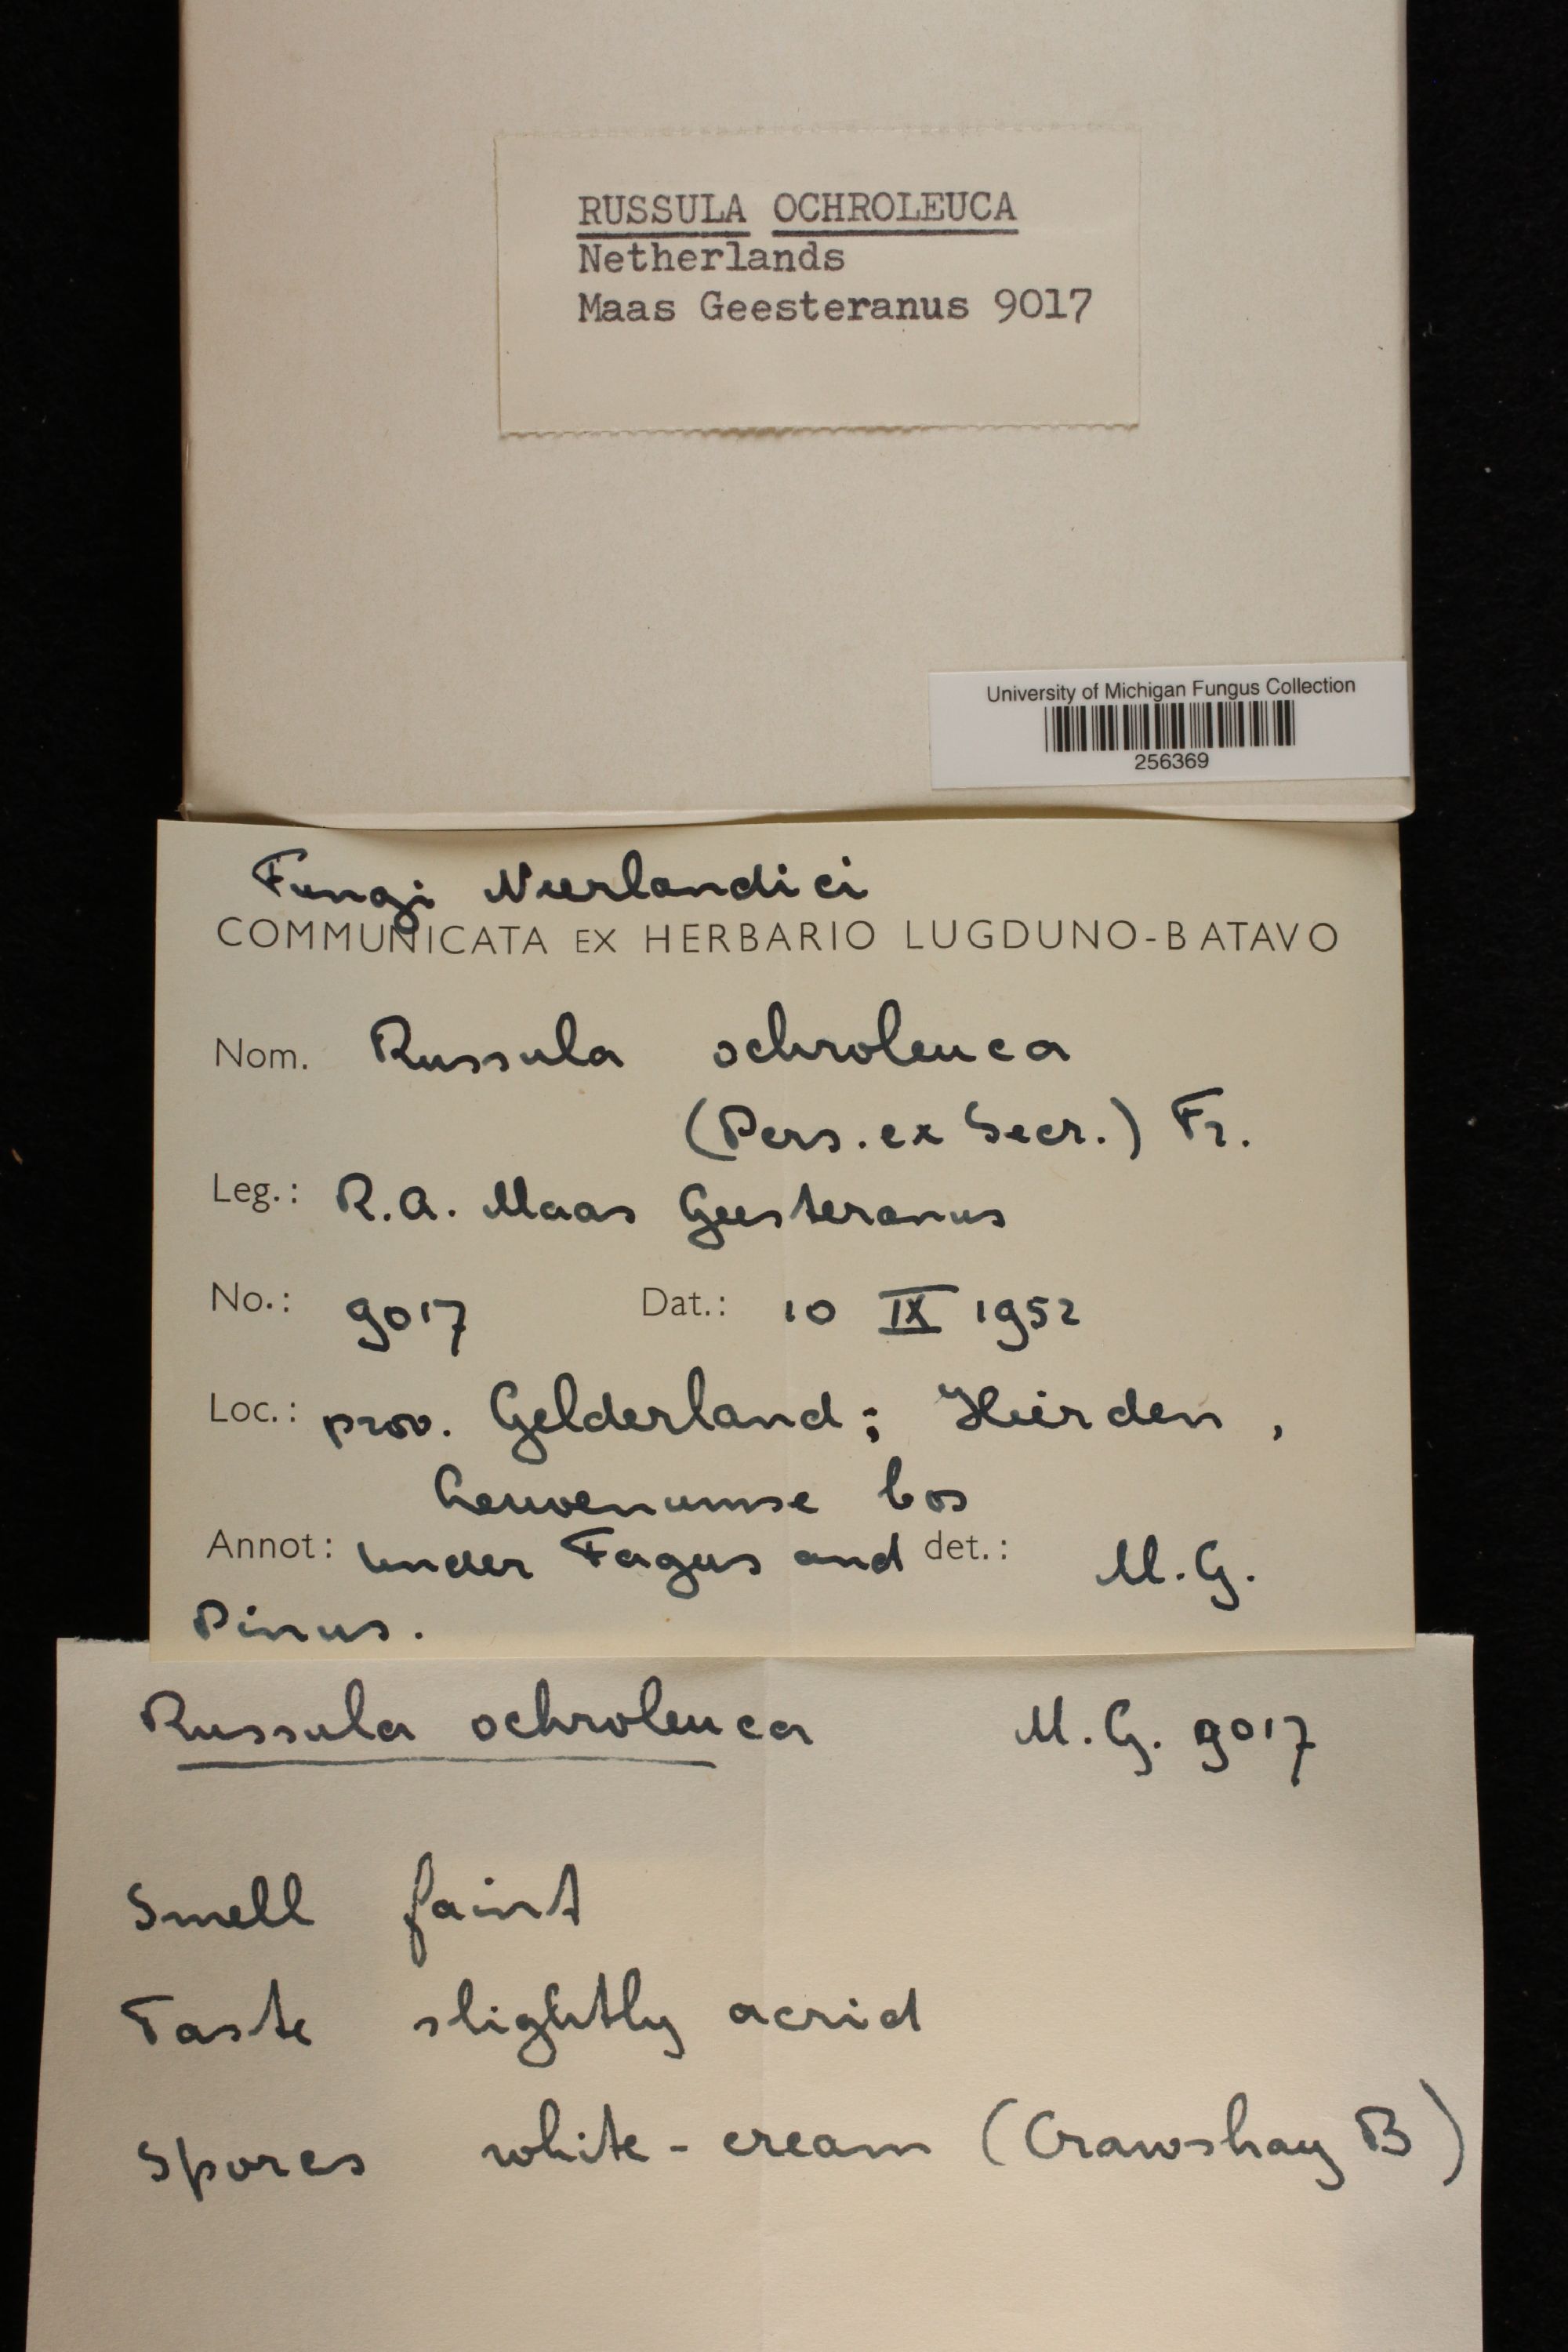 RUSSULA OCHROLEUCA
Netherlands
Maas Geesteranus 9017
University of Michigan Fungus Collection
256369
Fungi Neerlandici
COMMUNICATA EX HERBARIO LUGDUNO-BATAVO
Nom. Russula ochroleuca
(Pers. ex Secr.) Fr.
Leg.: R.A. Maas Geesteranus
No.: 9017 Dat.: 10 IX 1952
Loc.: prov. Gelderland; Hierden,
Leuvenumse bos
Annot: under Fagus and det.: M.G.
Pinus.
Russula ochroleuca M.G. 9017
Smell faint
Taste slightly acrid
Spores white-cream (Crawshay B)